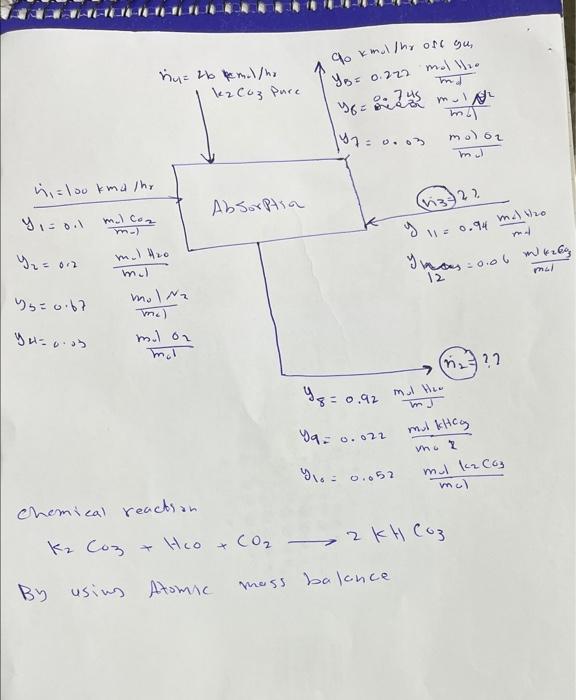 90 kmol/hr off gas
ṅ4 = 26 kmol/hr
K2CO3 Pure
y5 = 0.222 mol H2O/mol
y6 = 0.745 mol N2/mol
y7 = 0.03 mol O2/mol
Absorption
ṅ1 = 100 kmol/hr
y1 = 0.1 mol CO2/mol
y2 = 0.2 mol H2O/mol
y3 = 0.67 mol N2/mol
y4 = 0.03 mol O2/mol
ṅ3 = ??
y11 = 0.94 mol H2O/mol
y12 = 0.06 mol K2CO3/mol
ṅ2 = ??
y8 = 0.92 mol H2O/mol
y9 = 0.022 mol KHCO3/mol
y10 = 0.052 mol K2CO3/mol
Chemical reaction
K2 CO3 + HCO + CO2 → 2 KH CO3
By using Atomic mass balance